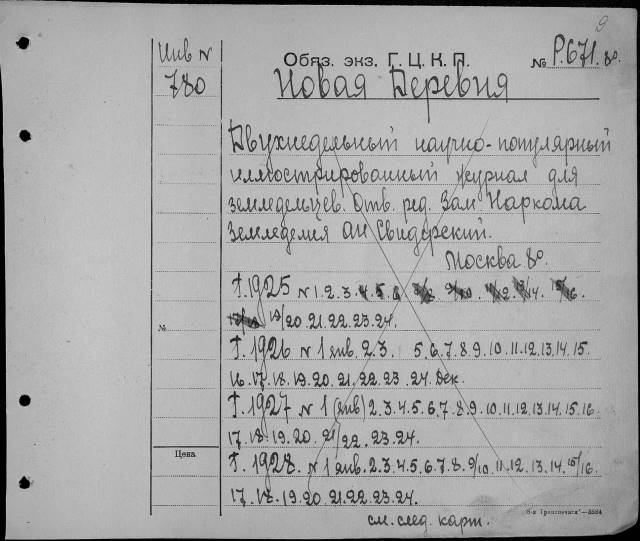 9
Инв №
780
Обяз. экз. Г. Ц. К. П.
№ Р.671. 8о.
Новая Деревня
Двухнедельный научно-популярный
иллюстрированный журнал для
земледельцев. Отв. ред. Зам Наркома
Земледелия Ал Свидерский.
Москва 8о.
Г. 1925 № 1. 2. 3. 4. 5. 6 7/8 9/10 11/12 13/14. 15/16.
17/18 19/20 21. 22. 23. 24.
№
Г. 1926 № 1 янв. 2. 3. 5. 6. 7. 8. 9. 10. 11. 12. 13. 14. 15.
16. 17. 18. 19. 20. 21. 22. 23 24. Дек.
Г. 1927 № 1 (янв) 2. 3. 4. 5. 6. 7. 8. 9. 10. 11. 12. 13. 14. 15. 16.
17. 18. 19. 20. 21/22. 23. 24.
Цена
Г. 1928. № 1 янв. 2. 3. 4. 5. 6. 7. 8. 9/10. 11. 12. 13. 14. 15/16.
17. 18. 19. 20. 21. 22. 23. 24.
"Транспечати"—3584
см. след. карт.